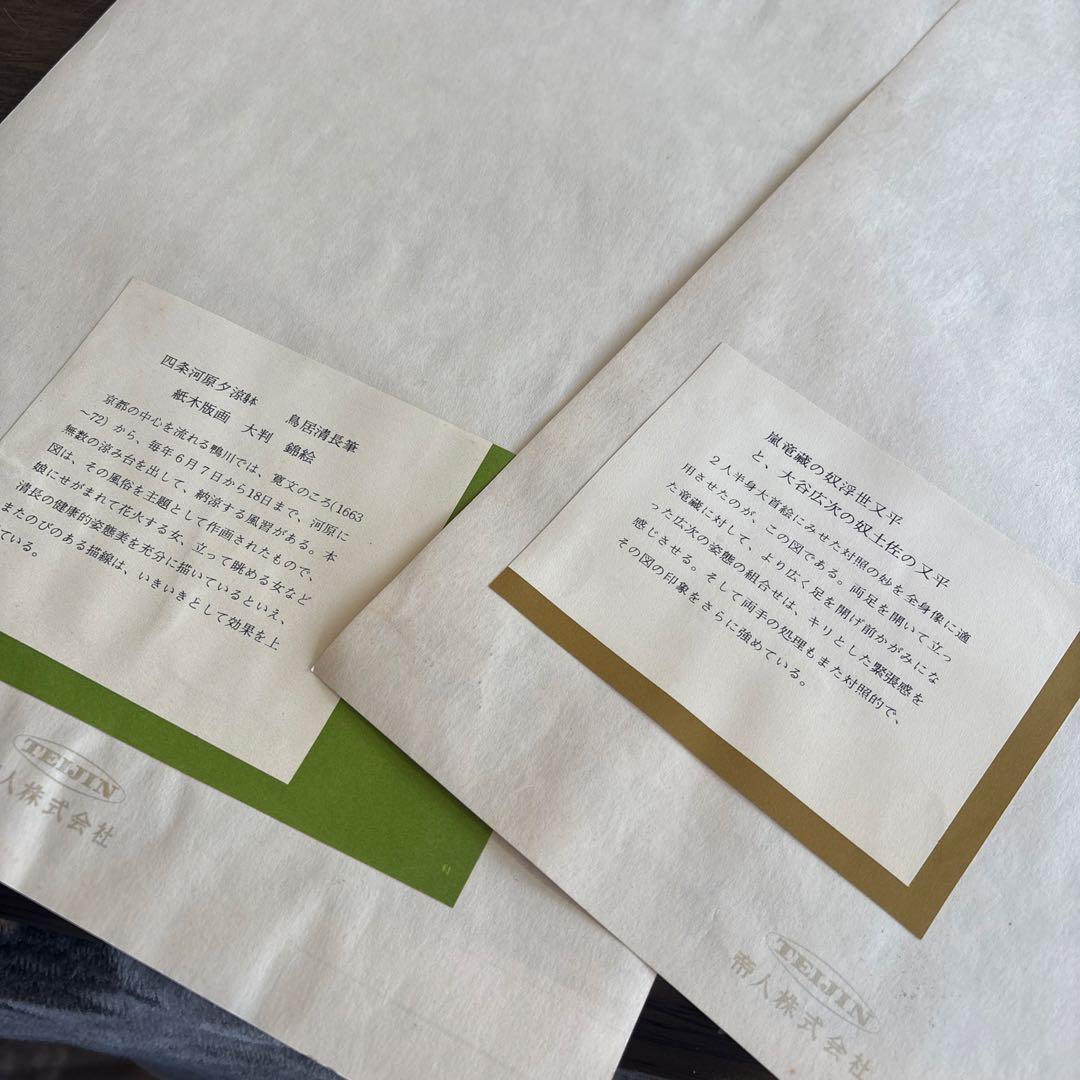 四条河原夕涼躰　鳥居清長筆
紙木版画　大判　錦絵
京都の中心を流れる鴨川では、寛文のころ(1663
～72)から、毎年6月7日から18日まで、河原に
無数の涼み台を出して、納涼する風習がある。本
図は、その風俗を主題として作画されたもので、
娘にせがまれて花火する女、立って眺める女など
清長の健康的姿態美を充分に描いているといえ、
またのびのある描線は、いきいきとして効果を上
ている。
TEIJIN
人株式会社
嵐竜蔵の奴浮世又平
と、大谷広次の奴土佐の又平
2人半身大首絵にみせた対照の妙を全身像に適
用させたのが、この図である。両足を開いて立っ
た竜蔵に対して、より広く足を開げ前かがみにな
った広次の姿態の組合せは、キリとした緊張感を
感じさせる。そして両手の処理もまた対照的で、
その図の印象をさらに強めている。
TEIJIN
帝人株式会社